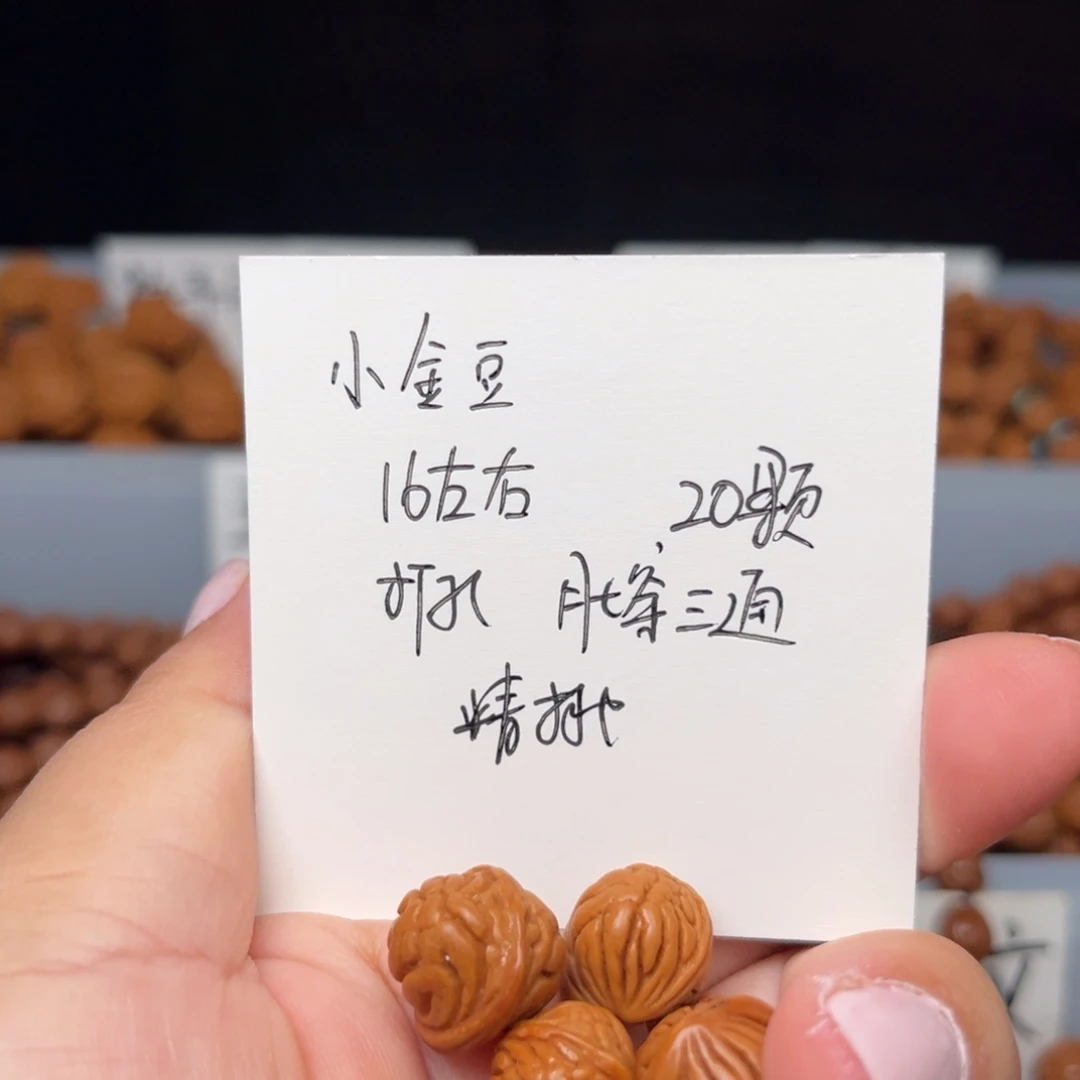 小金豆
16左右 20颗
打孔 配等三通
精挑